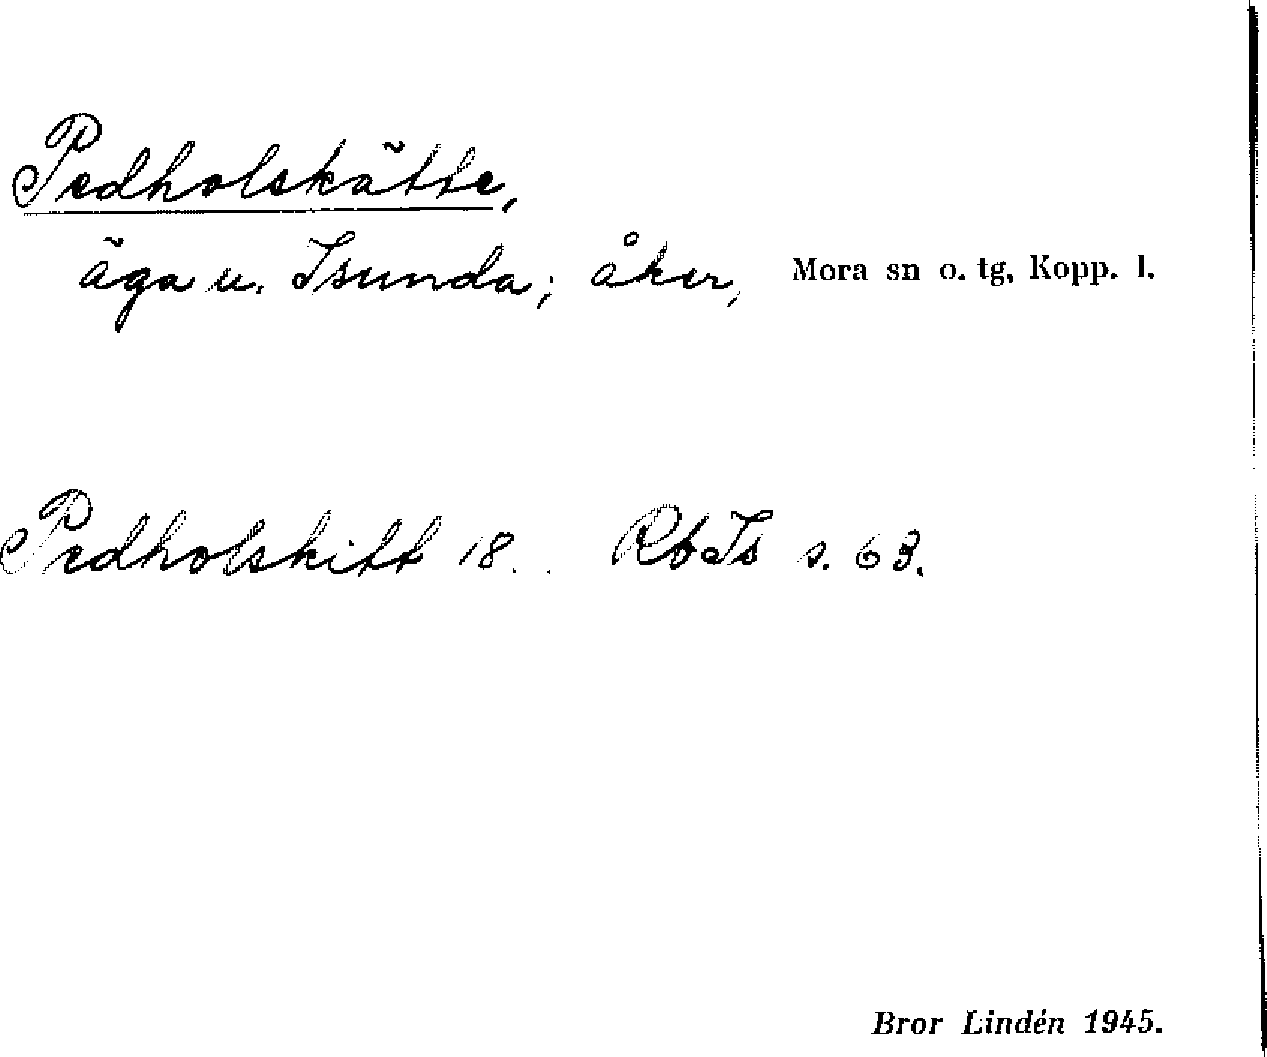 Pedholskätte,
äga u. Isunda; åker, Mora sn o. tg, Kopp. l.
Pedholskitt 18. . RbIs s. 63.
Bror Lindén 1945.